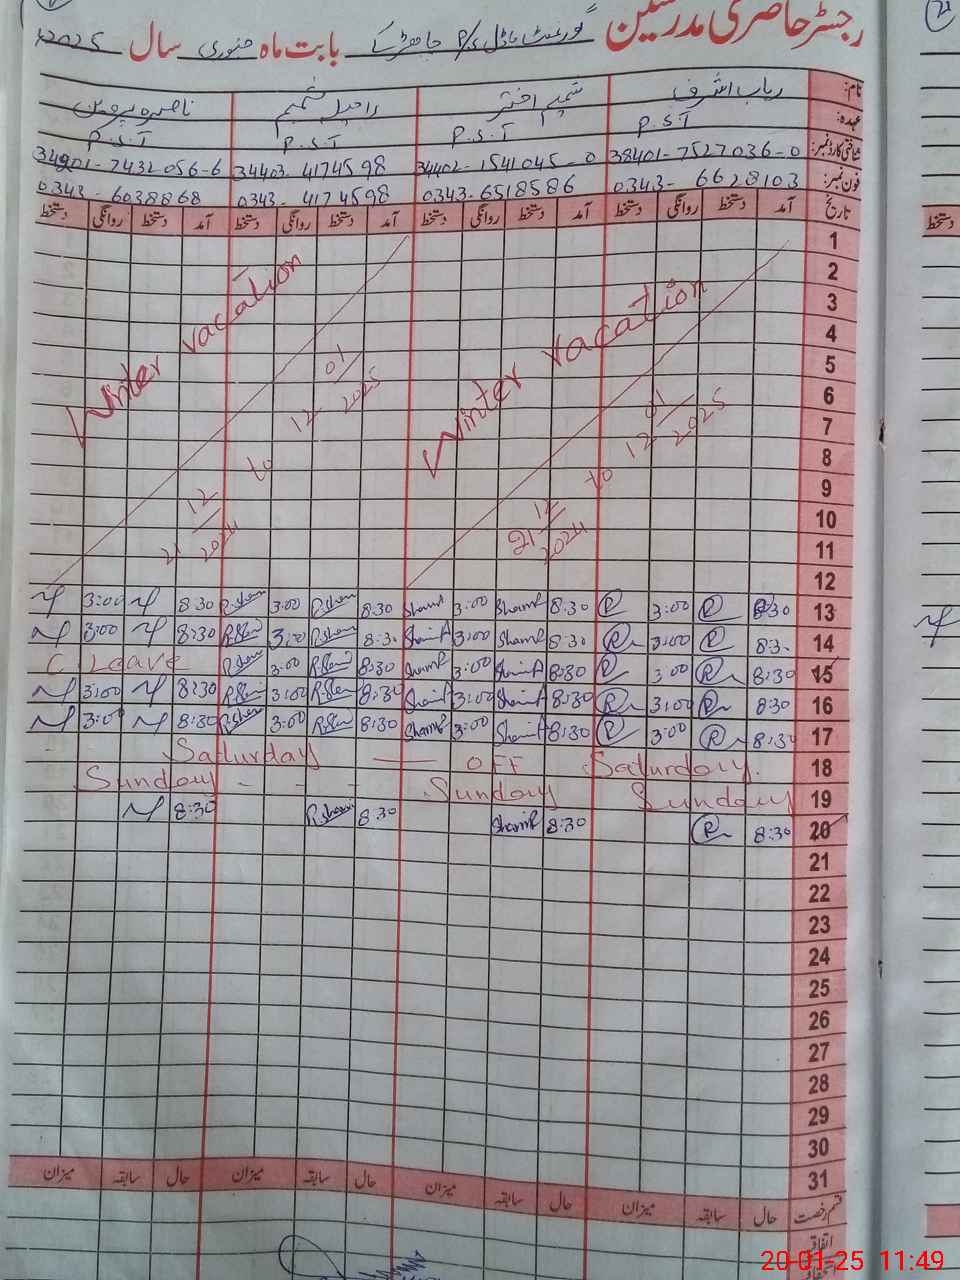 رجسٹر حاضری مدرسین گورنمنٹ ماڈل P/S بابت ماہ جنوری سال 2025
نام: رباب اشرف شمیم اختر راحیلہ شمیم ناصرہ پروین
عہدہ: P.S.T P.S.T P.S.T P.S.T
شناختی کارڈ نمبر: 38401-7527036-0 34402-1541045-0 34403-4174598 34201-7432056-6
فون نمبر: 0343-6628103 0343-6518586 0343-4174598 0343-6038868
تاریخ آمد دستخط روانگی دستخط آمد دستخط روانگی دستخط آمد دستخط روانگی دستخط آمد دستخط روانگی دستخط
1
2
3
4
5
6
7
8
9
10
11
12
Winter vacation 21/12/2024 to 12/01/2025
Winter vacation 21/12/2024 to 12/01/2025
3:00 8:30 R.Sham 3:00 R.Sham 8:30 Sham 3:00 Sham 8:30 R 3:00 R 8:30 13
3:00 8:30 R.Sham 3:00 R.Sham 8:30 Sham 3:00 Sham 8:30 R 3:00 R 8:30 14
C Leave R.Sham 3:00 R.Sham 8:30 Sham 3:00 Sham 8:30 R 3:00 R 8:30 15
3:00 8:30 R.Sham 3:00 R.Sham 8:30 Sham 3:00 Sham 8:30 R 3:00 R 8:30 16
3:00 8:30 R.Sham 3:00 R.Sham 8:30 Sham 3:00 Sham 8:30 R 3:00 R 8:30 17
Saturday — OFF Saturday. 18
Sunday - - - Sunday Sunday 19
8:30 R.Sham 8:30 Sham 8:30 R 8:30 20
21
22
23
24
25
26
27
28
29
30
31
قسم رخصت حال سابقہ میزان حال سابقہ میزان حال سابقہ میزان حال سابقہ میزان
اتفاقیہ
20-01-25 11:49
دستخط